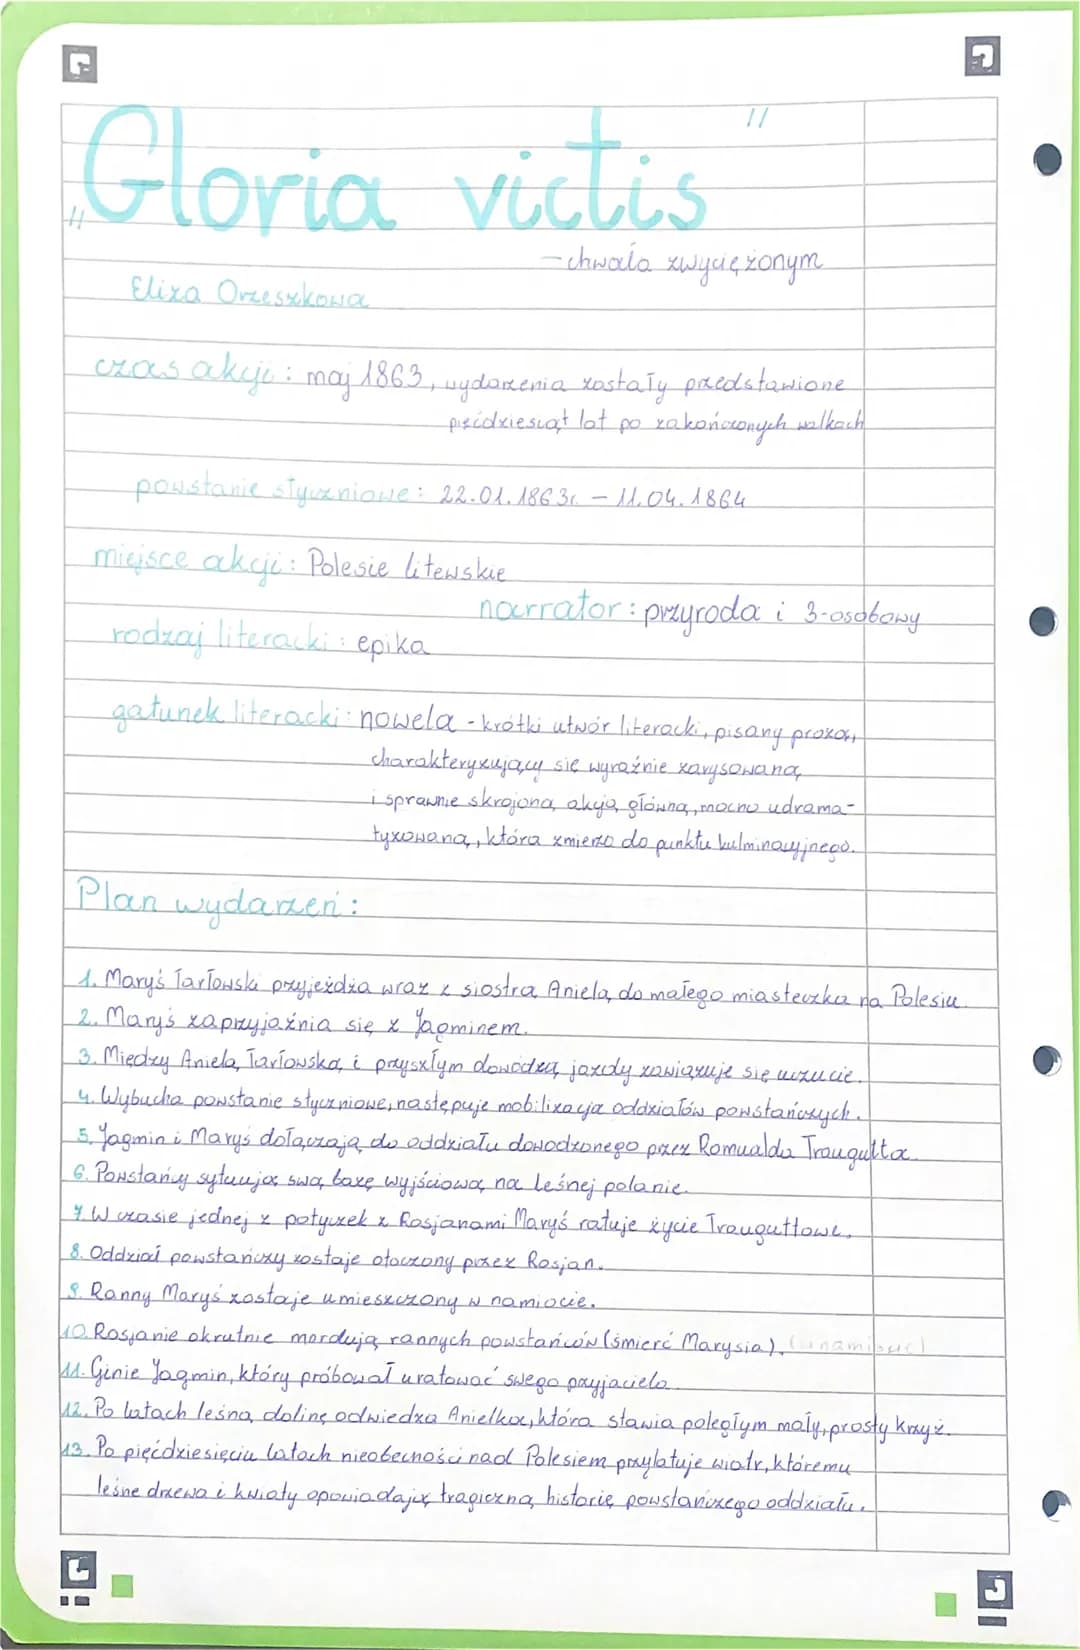 „Gloria victis"
– chwała zwyciężonym
Eliza Orzeszkowa
czas akcji: maj 1863, wydarzenia zostały przedstawione
pięćdziesiąt lat po zakończonych walkach
powstanie styczniowe: 22.01.1863r. – 11.04.1864
miejsce akcji: Polesie litewskie
narrator: przyroda i 3-osobowy
rodzaj literacki: epika
gatunek literacki: nowela - krótki utwór literacki, pisany prozą,
charakteryzujący się wyraźnie zarysowaną
i sprawnie skrojoną akcją główną, mocno udrama-
tyzowaną, która zmierza do punktu kulminacyjnego.
Plan wydarzeń:
1. Maryś Tarłowski przyjeżdża wraz z siostrą Anielą do małego miasteczka na Polesiu.
2. Maryś zaprzyjaźnia się z Jagminem.
3. Między Anielą Tarłowską i przyszłym dowódcą jazdy zawiązuje się uczucie.
4. Wybucha powstanie styczniowe, następuje mobilizacja oddziałów powstańczych.
5. Jagmin i Maryś dołączają do oddziału dowodzonego przez Romualda Traugutta.
6. Powstańcy sytuują swą bazę wyjściową na leśnej polanie.
7. W czasie jednej z potyczek z Rosjanami Maryś ratuje życie Trauguttowi.
8. Oddział powstańczy zostaje otoczony przez Rosjan.
9. Ranny Maryś zostaje umieszczony w namiocie.
10. Rosjanie okrutnie mordują rannych powstańców (śmierć Marysia).
11. Ginie Jagmin, który próbował uratować swego przyjaciela.
12. Po latach leśną dolinę odwiedza Anielka, która stawia poległym mały, prosty krzyż.
13. Po pięćdziesięciu latach nieobecności nad Polesiem przylatuje wiatr, któremu
leśne drzewa i kwiaty opowiadają tragiczną historię powstańczego oddziału.